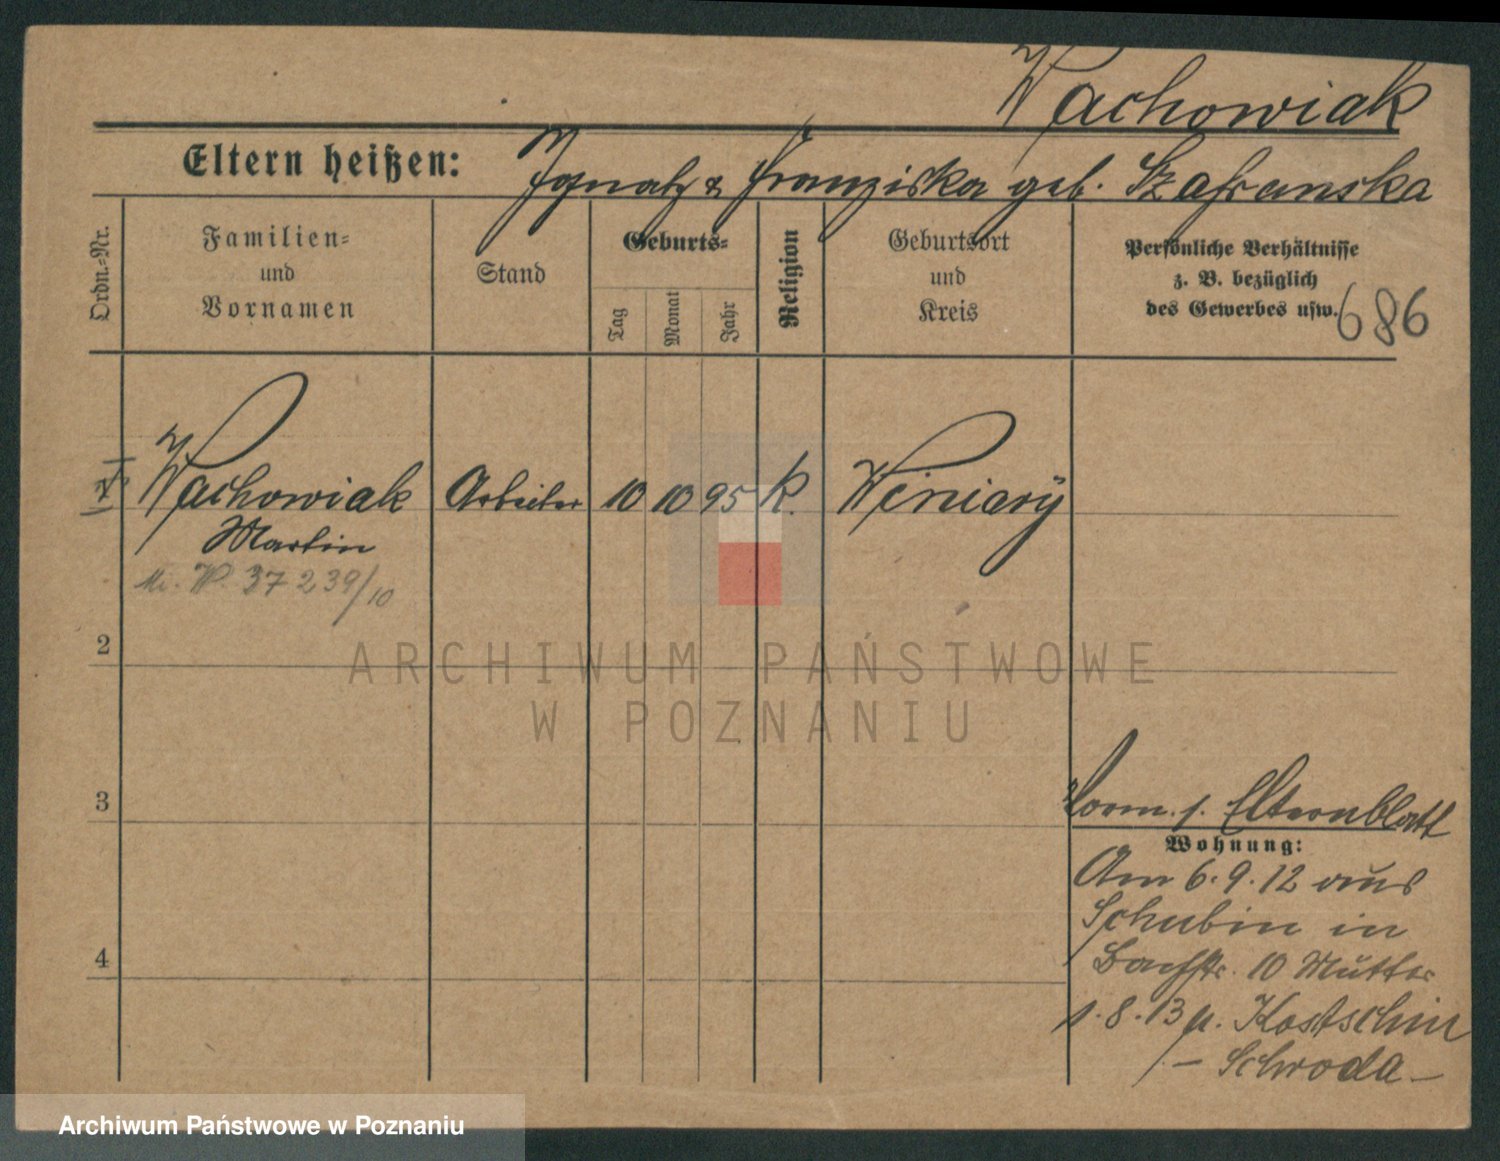 Wachowiak
Eltern heißen: Ignatz & Franziska geb. Szafranska
Ordn.-Nr.
Familien-
und
Vornamen
Stand
Geburts-
Tag
Monat
Jahr
Religion
Geburtsort
und
Kreis
Persönliche Verhältnisse
z. B. bezüglich
des Gewerbes usw.
686
Wachowiak Arbeiter 10 10 95 k. Winiary
Martin
37 239/10
2
ARCHIWUM PAŃSTWOWE
W POZNANIU
3
Vorm. s. Elternblatt
Wohnung:
Am 6.9.12 aus
Schubin in
Bachstr. 10 Mutter
1.8.13 n. Kostschin
– Schroda –
4
Archiwum Państwowe w Poznaniu